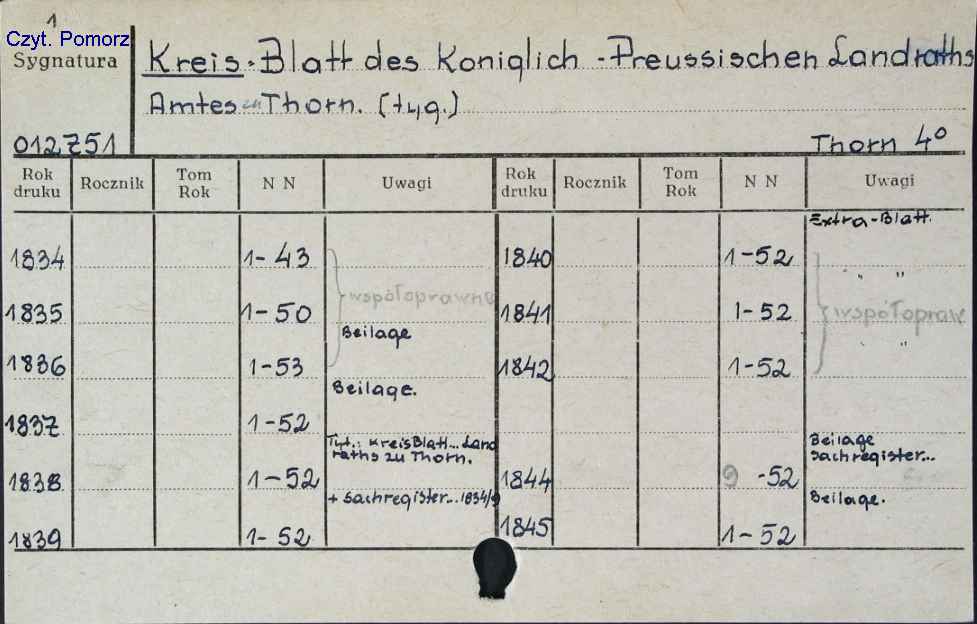 1
Czyt. Pomorz
Sygnatura
Kreis-Blatt des Koniglich-Preussischen Landraths
Amtes zu Thorn. (tyg.)
012751
Thorn 4°
Rok druku Rocznik Tom Rok N N Uwagi Rok druku Rocznik Tom Rok N N Uwagi
Extra-Blatt.
1834 1-43 1840 1-52
" "
współoprawne współopraw
1835 1-50 1841 1-52
Beilage
" "
1836 1-53 1842 1-52
Beilage.
1837 1-52
Tyt.: KreisBlatt... Land
raths zu Thorn.
Beilage
Sachregister...
1838 1-52 1844 9-52
+ Sachregister... 1834/9
Beilage.
1839 1-52 1845 1-52